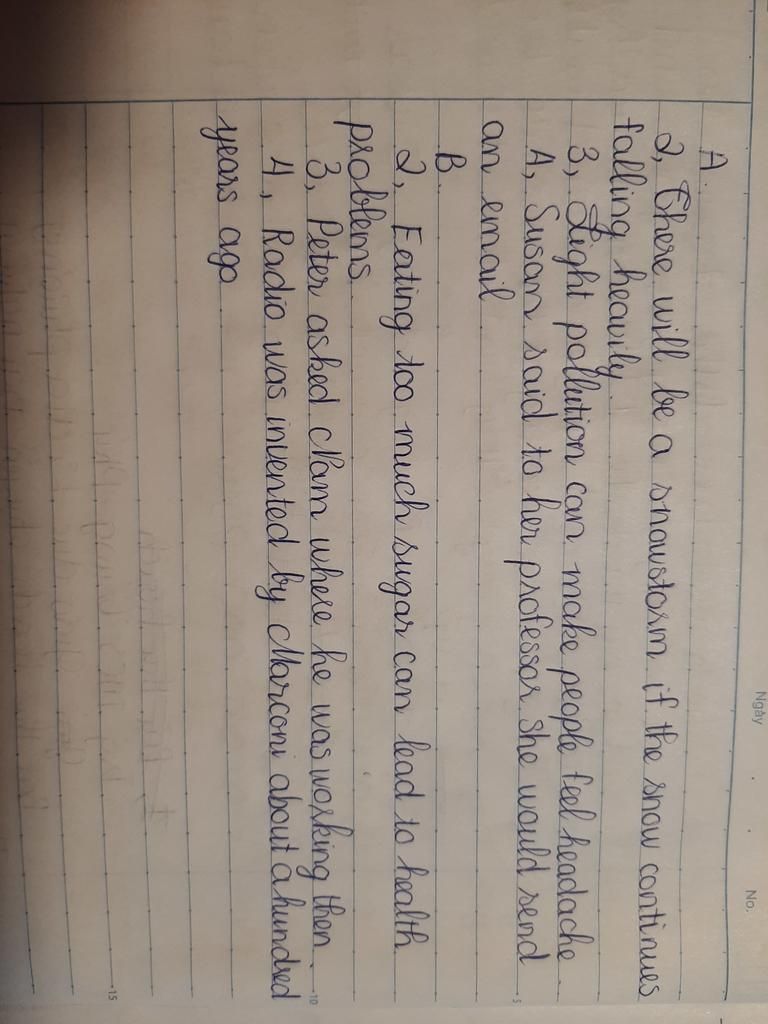 Ngày
No.
A.
2, There will be a snowstorm if the snow continues
falling heavily.
3, Light pollution can make people feel headache.
4, Susan said to her professor she would send
an email
B.
2, Eating too much sugar can lead to health
problems.
3, Peter asked Nam where he was working then.
4, Radio was invented by Marconi about a hundred
years ago
5
10
15